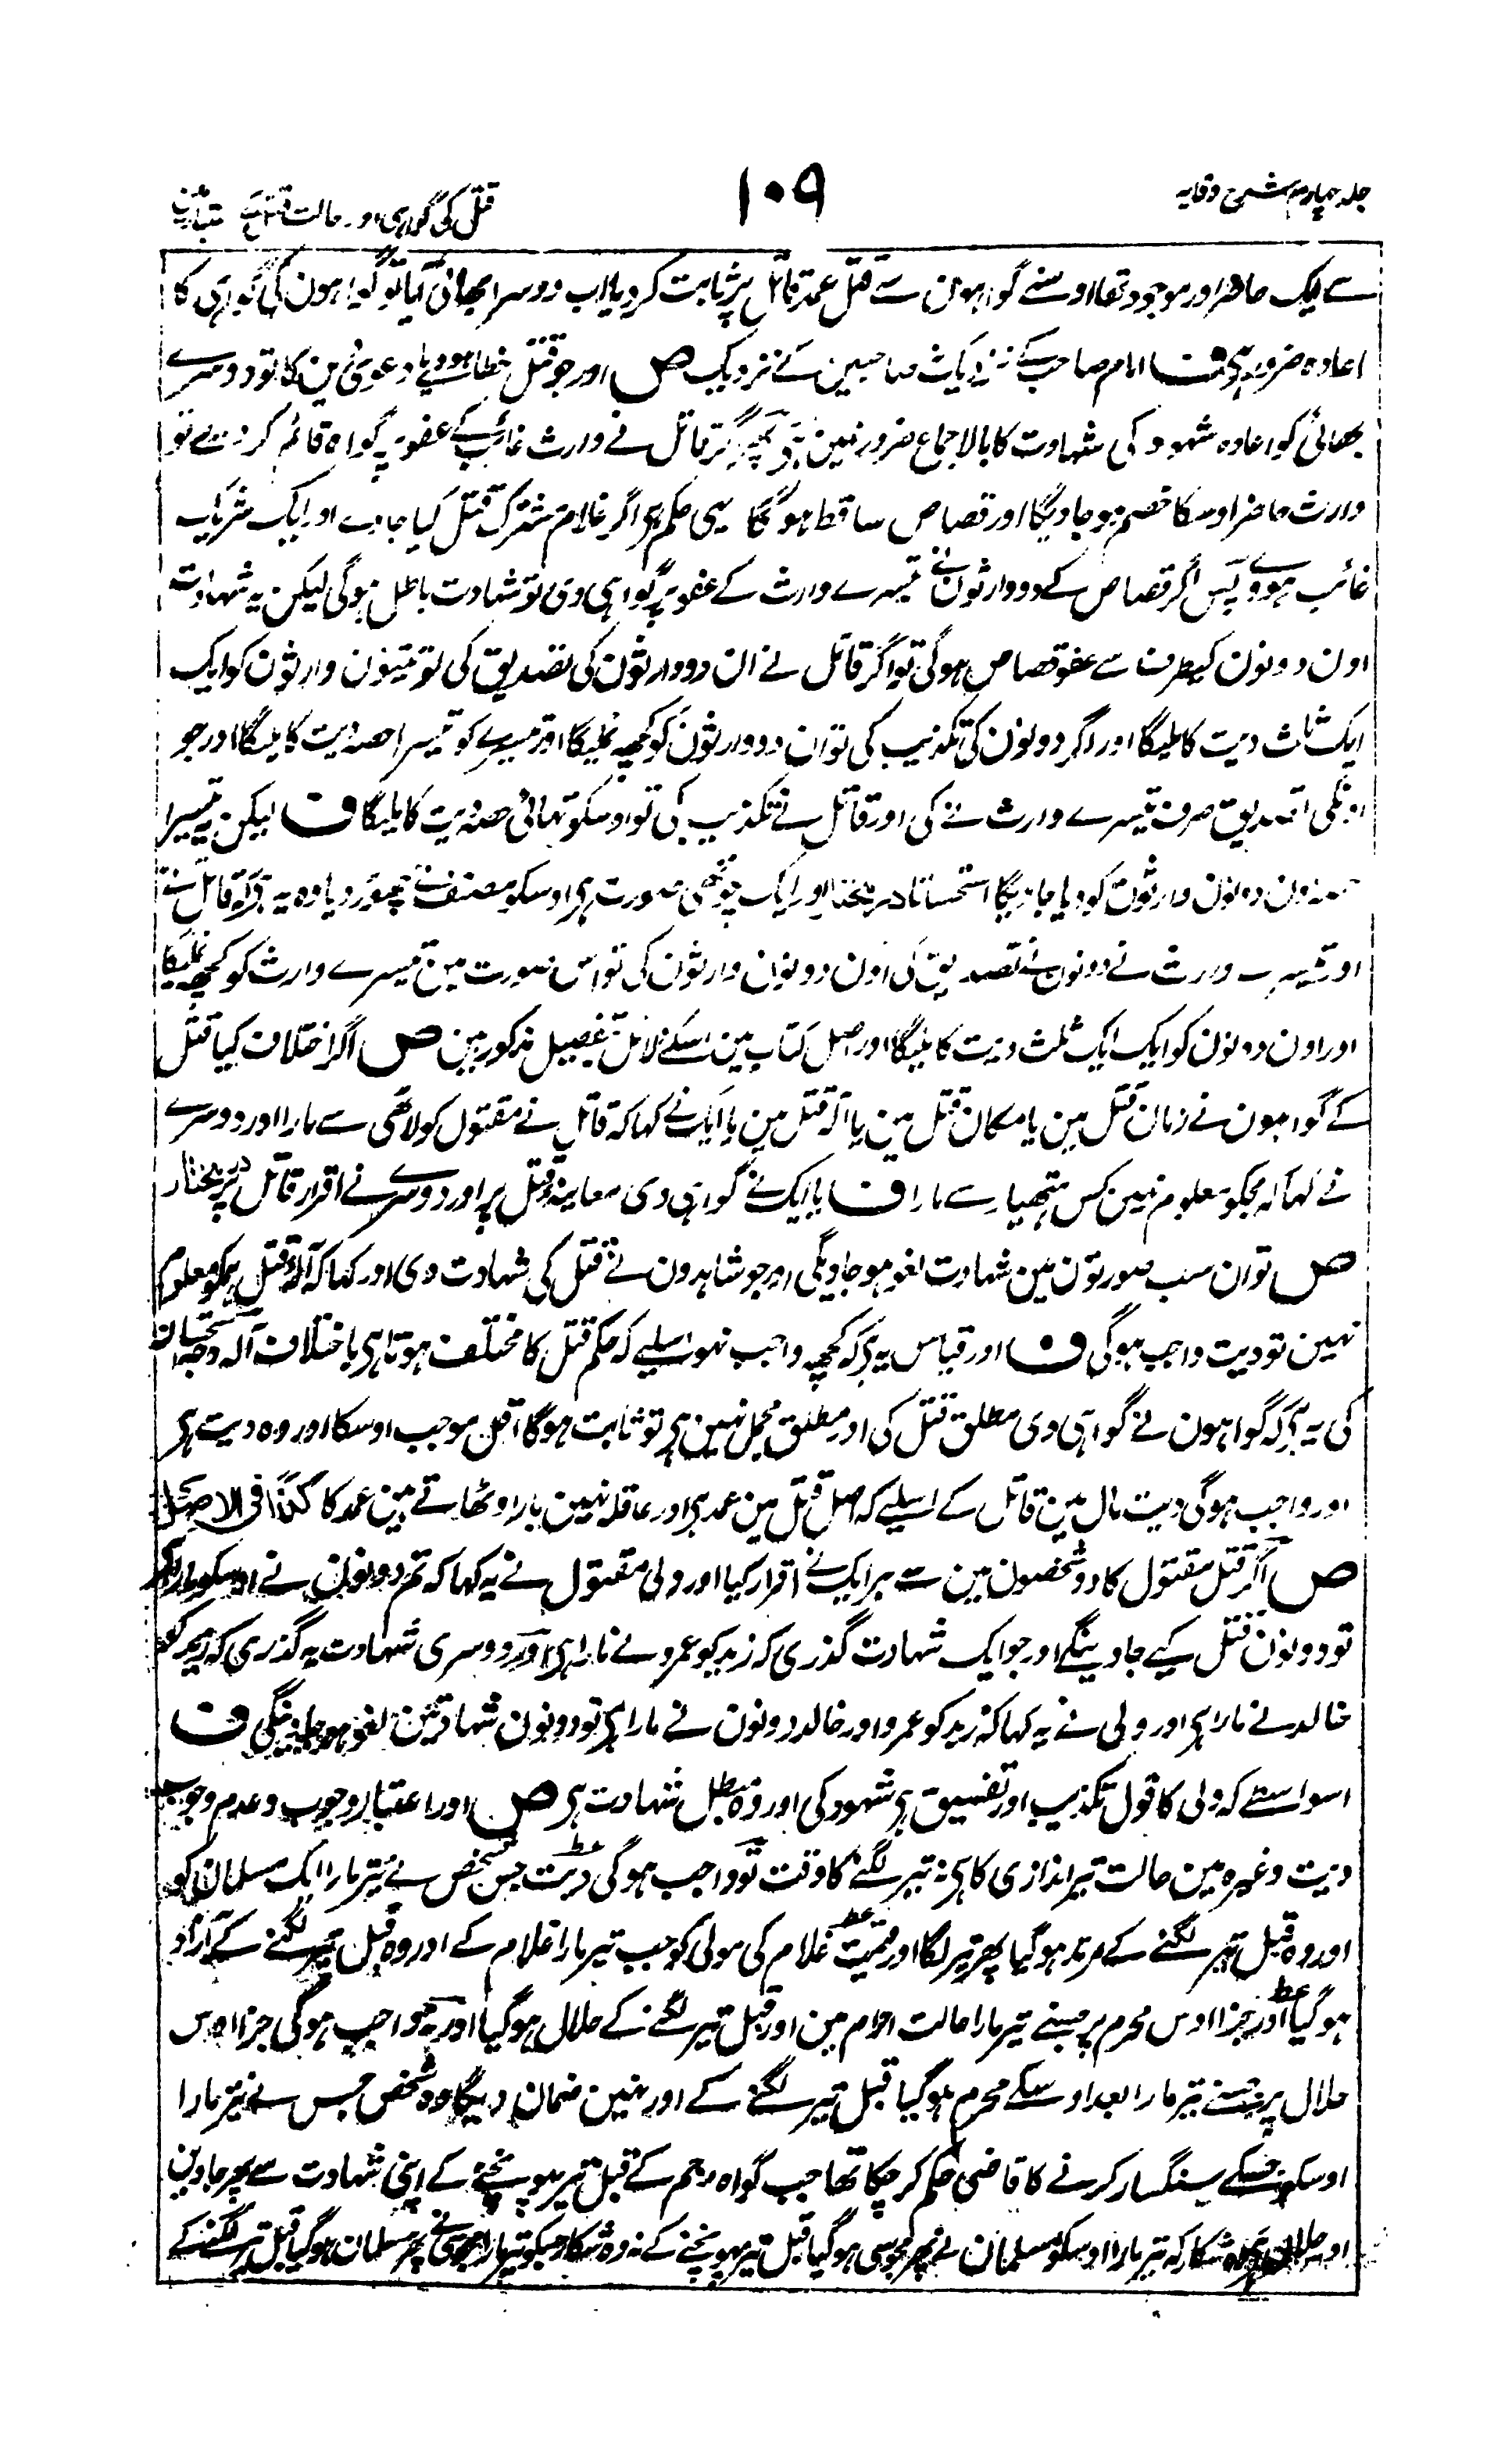 جلد چہارم شرح وقایہ
۱۰۹
قتل کی گواہی اور حالت قتل کے
سے ایک حاضر اور موجود تھا اوسنے گواہون سے قتل عمد قاتل پر ثابت کر دیا اب دوسرا بھائی آیا تو گواہون کی گواہی کا
اعادہ ضرور ہی ف امام صاحب کے نزدیک ص اور جو قتل خطا ہووے یا دعویٰ دین کا تو دوسرے
بھائی کو اعادہ شہود کی شہادت کا بالاجماع ضرور نہین ہی پھر اگر قاتل نے وارث غائب کے عفو پہ گواہ قائم کر دیے تو
وارث حاضر اوسکا خصم ہو جاویگا اور قصاص ساقط ہوگا یہی حکم ہی اگر غلام مشترک قتل کیا جاوے اور ایک شریک
غائب ہووے پس اگر قصاص کے دو وارثون نے تیسرے وارث کے عفو پر گواہی دی تو شہادت باطل ہوگی لیکن یہ شہادت
اون دونون کیطرف سے عفو قصاص ہوگی تو اگر قاتل نے ان دو وارثون کی تصدیق کی تو تینون وارثون کو ایک
ایک ثلث دیت کا ملیگا اور اگر دونون کی تکذیب کی تو ان دو وارثون کو کچھ نملیگا اور تیسرے کو تیسرا حصہ دیت کا ملیگا اور جو
اونکی تصدیق صرف تیسرے وارث نے کی اور قاتل نے تکذیب کی تو اوسکو تہائی حصہ دیت کا ملیگا ف لیکن یہ تیسرا
حصہ اون دونون وارثون کو دیا جاویگا استحسانا درمختار اور ایک چوتھی صورت ہی اوسکو مصنف نے چھوڑ دیا وہ یہ ہی کہ قاتل نے
اور تیسرے وارث نے دونون نے تصدیق کی اون دونون وارثون کی تو اس صورت مین تیسرے وارث کو کچھ نملیگا
اور اون دونون کو ایک ایک ثلث دیت کا ملیگا اور اصل کتاب مین اسکے دلائل بتفصیل مذکور ہین ص اگر اختلاف کیا قتل
کے گواہون نے زمان قتل مین یا مکان قتل مین یا آلہ قتل مین یا ایک نے کہا کہ قاتل نے مقتول کو لاٹھی سے مارا اور دوسرے
نے کہا کہ مجکو معلوم نہین کس ہتھیار سے مارا ف یا ایک نے گواہی دی معاینہ قتل پر اور دوسرے نے اقرار قاتل پر درمختار
ص تو ان سب صورتون مین شہادت لغو ہو جاویگی اور جو شاہدون نے قتل کی شہادت دی اور کہا کہ آلہ قتل ہمکو معلوم
نہین تو دیت واجب ہوگی ف اور قیاس یہ ہی کہ کچھ واجب نہو اسلیے کہ حکم قتل کا مختلف ہوتا ہی باختلاف آلہ وجہ استحسان
کی یہ ہی کہ گواہون نے گواہی دی مطلق قتل کی اور مطلق مجمل نہین ہی تو ثابت ہوگا اقل موجب اوسکا اور وہ دیت ہی
اور واجب ہوگی دیت مال مین قاتل کے اسلیے کہ اصل قتل مین عمد ہی اور عاقلہ نہین بار اوٹھاتے ہین عمد کا کذا فی الاصل
ص اگر قتل مقتول کا دو شخصون مین سے ہر ایک نے اقرار کیا اور ولی مقتول نے یہ کہا کہ تم دونون نے اوسکو مارا ہی
تو دونون قتل کیے جاوینگے اور جو ایک شہادت گذری کہ زید کو عمرو نے مارا ہی اور دوسری شہادت یہ گذری کہ زید کو
خالد نے مارا ہی اور ولی نے یہ کہا کہ زید کو عمرو اور خالد دونون نے مارا ہی تو دونون شہادتین لغو ہو جاوینگی ف
اسواسطے کہ ولی کا قول تکذیب اور تفسیق ہی شہود کی اور وہ مبطل شہادت ہی ص اور اعتبار وجوب و عدم وجوب
دیت وغیرہ مین حالت تیر اندازی کا ہی نہ تیر لگنے کا وقت تو واجب ہوگی دیت جس شخص نے تیر مارا ایک مسلمان کو
اور وہ قبل تیر لگنے کے مرتد ہو گیا پھر تیر لگا اور قیمت غلام کی مولی کو جب تیر مارا غلام کے اور وہ قبل تیر لگنے کے آزاد
ہو گیا اور جزا اوس محرم پر جسنے تیر مارا حالت احرام مین اور قبل تیر لگنے کے حلال ہو گیا اور نہ واجب ہوگی جزا اوس
حلال پر جسنے تیر مارا بعد اوسکے محرم ہو گیا قبل تیر لگنے کے اور نہین ضمان دیگا وہ شخص جس نے تیر مارا
اوسکو جسکے سنگسار کرنے کا قاضی حکم کر چکا تھا جب گواہ رجم کے قبل تیر پہونچنے کے اپنی شہادت سے پھر جاوین
اور حلال ہی وہ شکار کہ تیر مارا اوسکو مسلمان نے پھر مجوسی ہو گیا قبل تیر پہونچنے کے نہ وہ شکار جسکو تیر مارا مجوسی نے پھر مسلمان ہو گیا قبل تیر لگنے کے